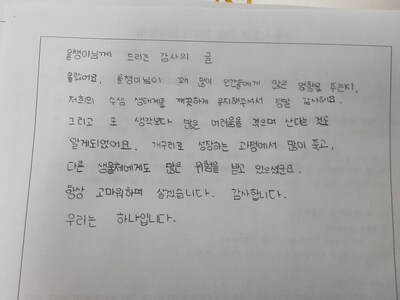 올챙이님께 드리는 감사의 글
몰랐어요. 올챙이님이 꽤 많이 인간들에게 많은 영향을 주는지,
저희의 수생 생태계를 깨끗하게 유지해주셔서 정말 감사해요.
그리고 또 생각보다 많은 어려움을 겪으며 산다는 것도
알게되었어요. 개구리로 성장하는 과정에서 많이 죽고,
다른 생물체에게도 많은 위협을 받고 있으셨군요.
항상 고마워하며 살겠습니다. 감사합니다.
우리는 하나입니다.